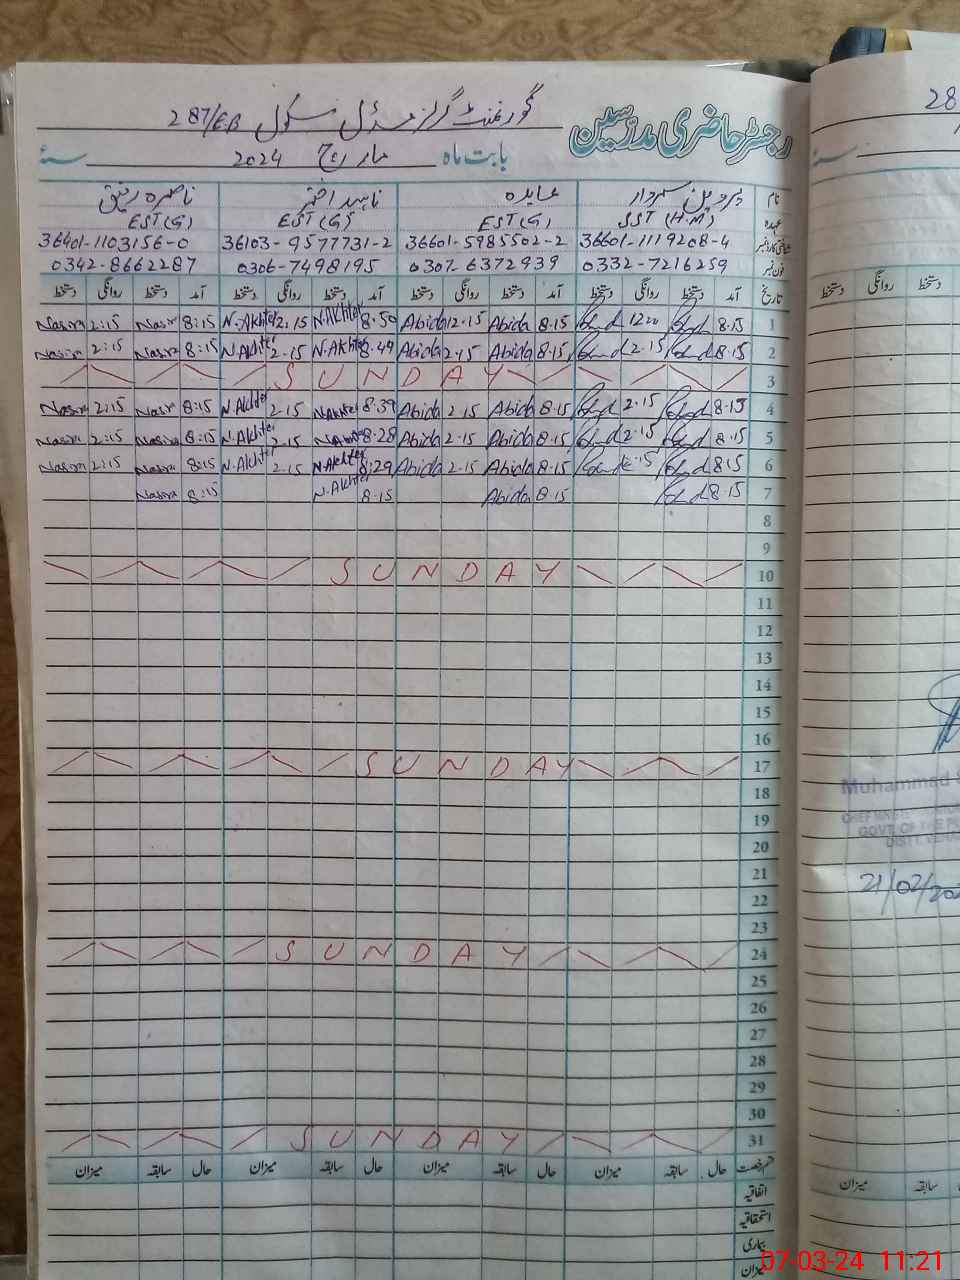 رجسٹر حاضری مدرسین گورنمنٹ گرلز مڈل سکول 287/EB
بابت ماہ مارچ 2024 سنہ
نام پروین سردار عابدہ ناہید اختر ناصرہ رفیق
عہدہ SST (H.M) EST(G) EST(G) EST(G)
شناختی کارڈ نمبر 36601-1119208-4 36601-5985502-2 36103-9577731-2 36401-1103156-0
فون نمبر 0332-7216259 0307-6372939 0306-7498195 0342-8662287
تاریخ آمد دستخط روانگی دستخط آمد دستخط روانگی دستخط آمد دستخط روانگی دستخط آمد دستخط روانگی دستخط
1 8.15 12.00 8.15 Abida 12.15 Abida 8.50 N.Akhter 2.15 N.Akhter 8:15 Nasira 2:15 Nasira
2 8.15 2.15 8.15 Abida 2.15 Abida 8.49 N.Akhter 2.15 N.Akhter 8:15 Nasira 2:15 Nasira
3 SUNDAY
4 8.15 2.15 8.15 Abida 2.15 Abida 8.39 N.Akhter 2.15 N.Akhter 8:15 Nasira 2:15 Nasira
5 8.15 2.15 8.15 Abida 2.15 Abida 8.28 2.15 N.Akhter 8:15 Nasira 2:15 Nasira
6 8.15 8.15 Abida 2.15 Abida 8:29 N.Akhter 2.15 N.Akhter 8:15 Nasira 2:15 Nasira
7 8.15 8.15 Abida 8.15 N.Akhter 8:15 Nasira
8
9
10 SUNDAY
11
12
13
14
15
16
17 SUNDAY
18
19
20
21
22
23
24 SUNDAY
25
26
27
28
29
30
31 SUNDAY
قسم رخصت حال سابقہ میزان حال سابقہ میزان حال سابقہ میزان حال سابقہ میزان
اتفاقیہ
استحقاقیہ
بیماری
میزان
28
سنہ
دستخط روانگی دستخط
Muhammad S
GOVT. OF THE PU
21/02/202
میزان سابقہ
07-03-24 11:21